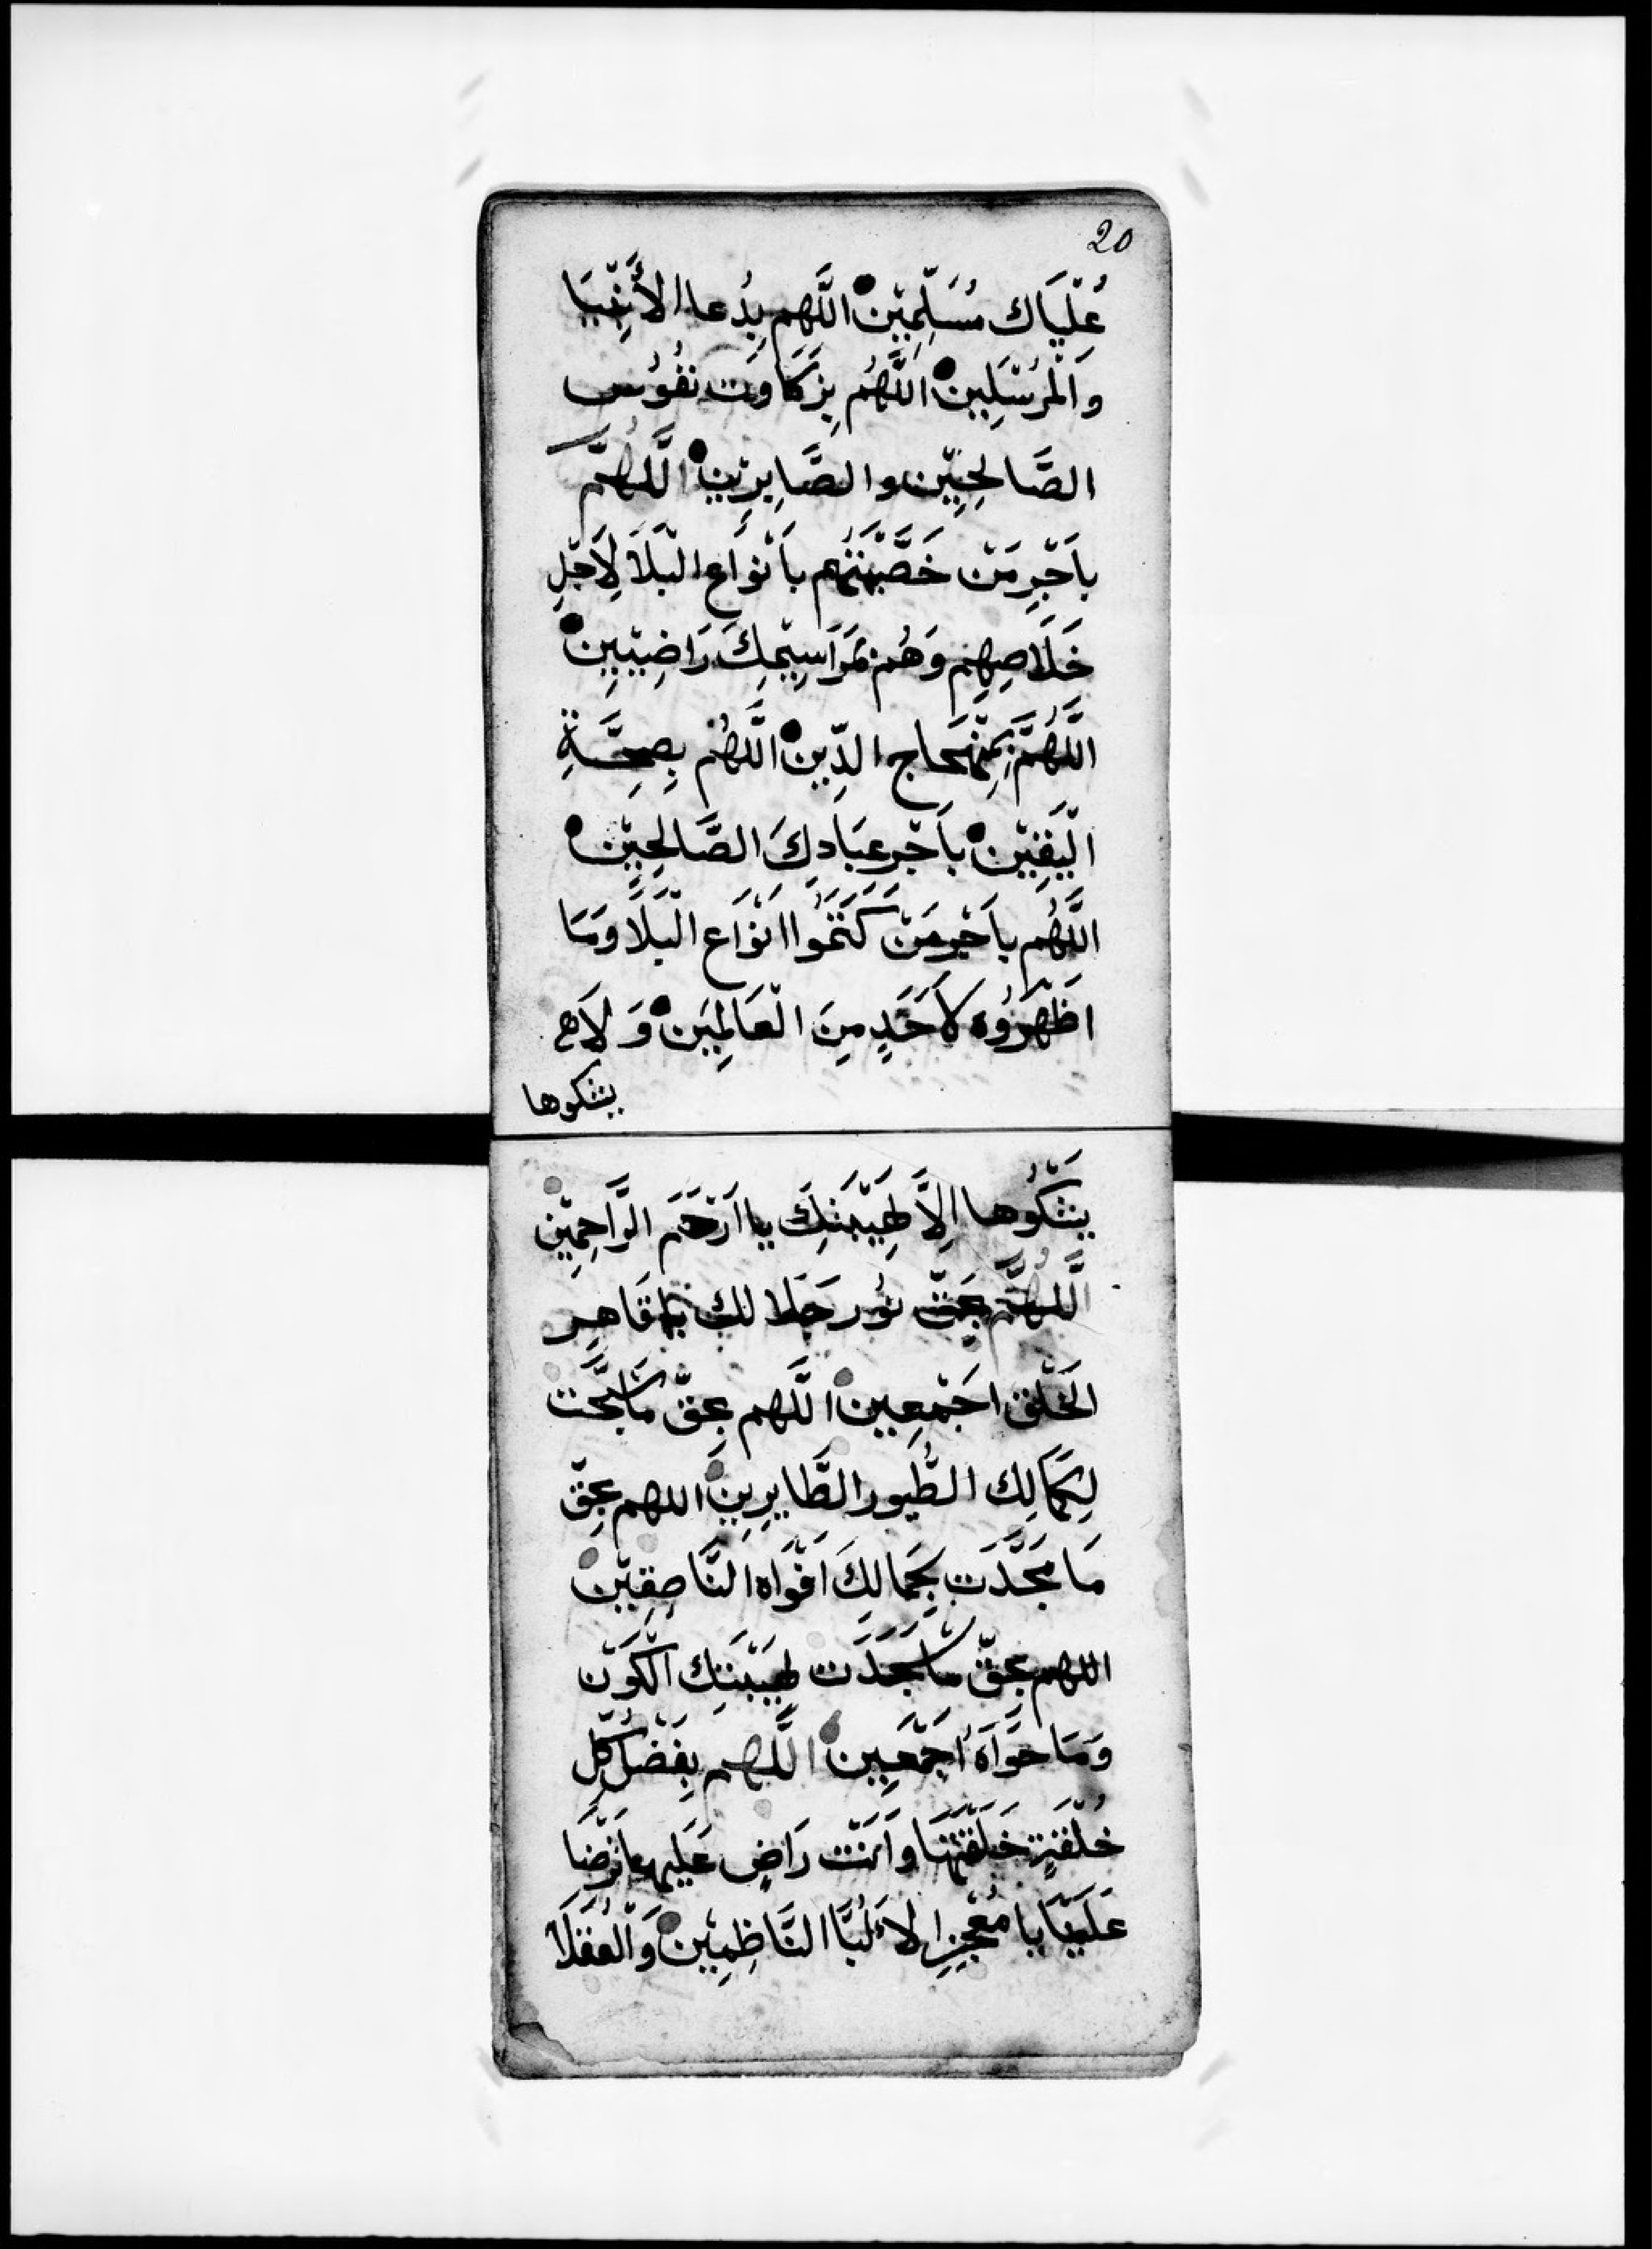 20
عُلْيَاك مُسَلِّمِيْن اللَّهم بِدُعا الأَنْبِيَا
وَالْمُرْسَلِين اللَّهُم بِزَكَاوَت نفُوُس
الصَّالحِيِّن والصَّابِرِين اللَّهُمَّ
بأَجْرِ مَن خَصَّيْتَهُم بأنْوَاعِ الْبَلَا لِأَجْلِ
خَلَاصِهِم وَهُم بمَرَاسِيمِكَ رَاضِيِين
اللَّهُمَّ بِمِنْهَاج الدِّين اللَّهُم بِصِحَّةِ
الْيَقِيْن بأَجْر عِبَادِكَ الصَّالِحِيْن
اللَّهُم بأَجْرِ مَنْ كَتَمُوا انْوَاع الْبَلَا وَمَا
اظْهَرُوه لأَحَدٍ مِنَ الْعَالَمِيَن وَلَا
يشكوها
يَشْكُوها الاَّ لِهَيْبَتِكَ يا ارْحَم الرَّاحِمِيْن
اللَّهُمَّ بحَقّ نوُر لك يا قَاهِر
الخَلْق اجْمَعِين اللَّهم بحقّ مَا سَبَّحَت
لِكَمَالِك الطُّيور الطَّايرِين اللهم بحَقّ
مَا مَجَّدَت لجَمالِكَ افْوَاه النَّاطِقِيْن
اللهم بحَقّ مَا سَجَدَت لِهَيْبَتِك الْكَوْن
وَمَا حَوَاه اجْمَعِين اللَّهم بِفَضْل كُلِّ
خُلْقَةٍ خَلَقْتَهَا وَانْتَ رَاضٍ عَلَيها تَرْضَا
عَلَيْنَا يا مُعْجِزِ الأَلُبَّا النَّاظِمِيْن وَالْعُقَلَا